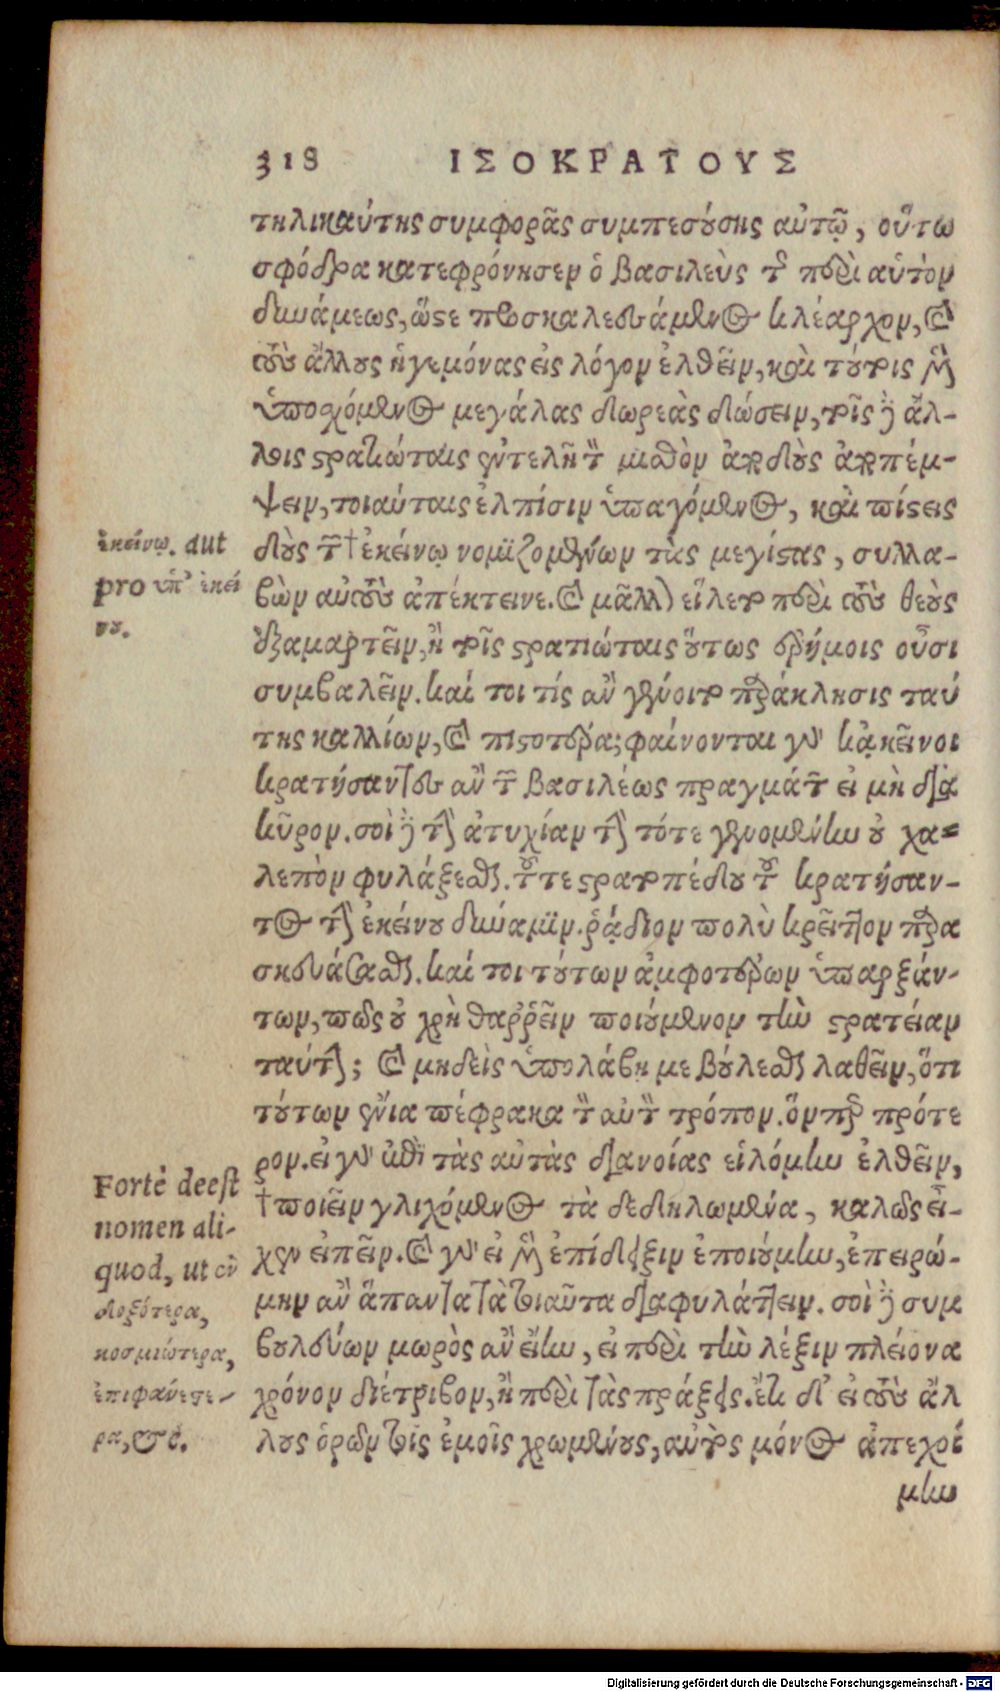 318 ΙΣΟΚΡΑΤΟΥΣ
τηλικαύτης συμφορᾶς συμπεσούσης αὐτῷ, οὕτω
σφόδρα κατεφρόνησεν ὁ βασιλεὺς τῆς περὶ αὑτὸν
δυνάμεως, ὥστε προσκαλεσάμενος κλέαρχον, καὶ
τοὺς ἄλλους ἡγεμόνας εἰς λόγον ἐλθεῖν, καὶ τούτοις μὲν
ὑποσχόμενος μεγάλας δωρεὰς δώσειν, τοῖς δὲ ἄλ-
λοις στρατιώταις ἐντελῆ τὸν μισθὸν ἀποδοὺς ἀποπέμ-
ψειν, τοιαύταις ἐλπίσιν ὑπαγόμενος, καὶ πίστεις
δοὺς τῶν †ἐκείνῳ νομιζομένων τὰς μεγίστας, συλλα-
βὼν αὐτοὺς ἀπέκτεινε. καὶ μᾶλλον εἵλετο περὶ τοὺς θεοὺς
ἐξαμαρτεῖν, ἢ τοῖς στρατιώταις οὕτως ἐρήμοις οὖσι
συμβαλεῖν. καί τοι τίς ἂν γένοιτο παράκλησις ταύ
της καλλίων, καὶ πιστοτέρα; φαίνονται γὰρ κᾀκεῖνοι
κρατήσαντες ἂν τῶν βασιλέως πραγμάτων εἰ μὴ διὰ
κῦρον. σοὶ δὲ τὴν ἀτυχίαν τὴν τότε γενομένην οὐ χα-
λεπὸν φυλάξεσθαι. τοῦ τε στρατοπέδου τοῦ κρατήσαν-
τος τὴν ἐκείνου δύναμιν. ῥᾴδιον πολὺ κρεῖττον παρα
σκευάσασθαι. καί τοι τούτων ἀμφοτέρων ὑπαρξάν-
των, πῶς οὐ χρὴ θαῤῥεῖν ποιούμενον τὴν στρατείαν
ταύτην; καὶ μηδεὶς ὑπολάβῃ με βούλεσθαι λαθεῖν, ὅτι
τούτων ἔνια πέφρακα τὸν αὐτὸν τρόπον. ὅνπερ πρότε
ρον. εἰ γὰρ ἐπὶ τὰς αὐτὰς διανοίας εἱλόμην ἐλθεῖν,
†ποιεῖν γλιχόμενος τὰ δεδηλωμένα, καλῶς εἶ-
χεν εἰπεῖν. καὶ γὰρ εἰ μὲν ἐπίδειξιν ἐποιούμην, ἐπειρώ-
μην ἂν ἅπαντα τὰ τοιαῦτα διαφυλάττειν. σοὶ δὲ συμ
βουλεύων μωρὸς ἂν εἴην, εἰ περὶ τὴν λέξιν πλείονα
χρόνον διέτριβον, ἢ περὶ τὰς πράξεις. ἔτι δ' εἰ τοὺς ἄλ
λους ὁρῶν τοῖς ἐμοῖς χρωμένους, αὐτὸς μόνος ἀπεχοί
μην
ἐκείνῳ. aut
pro ὑπ' ἐκεί
νου.
Fortè deest
nomen ali-
quod, ut ἐν
δοξότερα,
κοσμιώτερα,
ἐπιφανέστε-
ρα, &c.
Digitalisierung gefördert durch die Deutsche Forschungsgemeinschaft - DFG